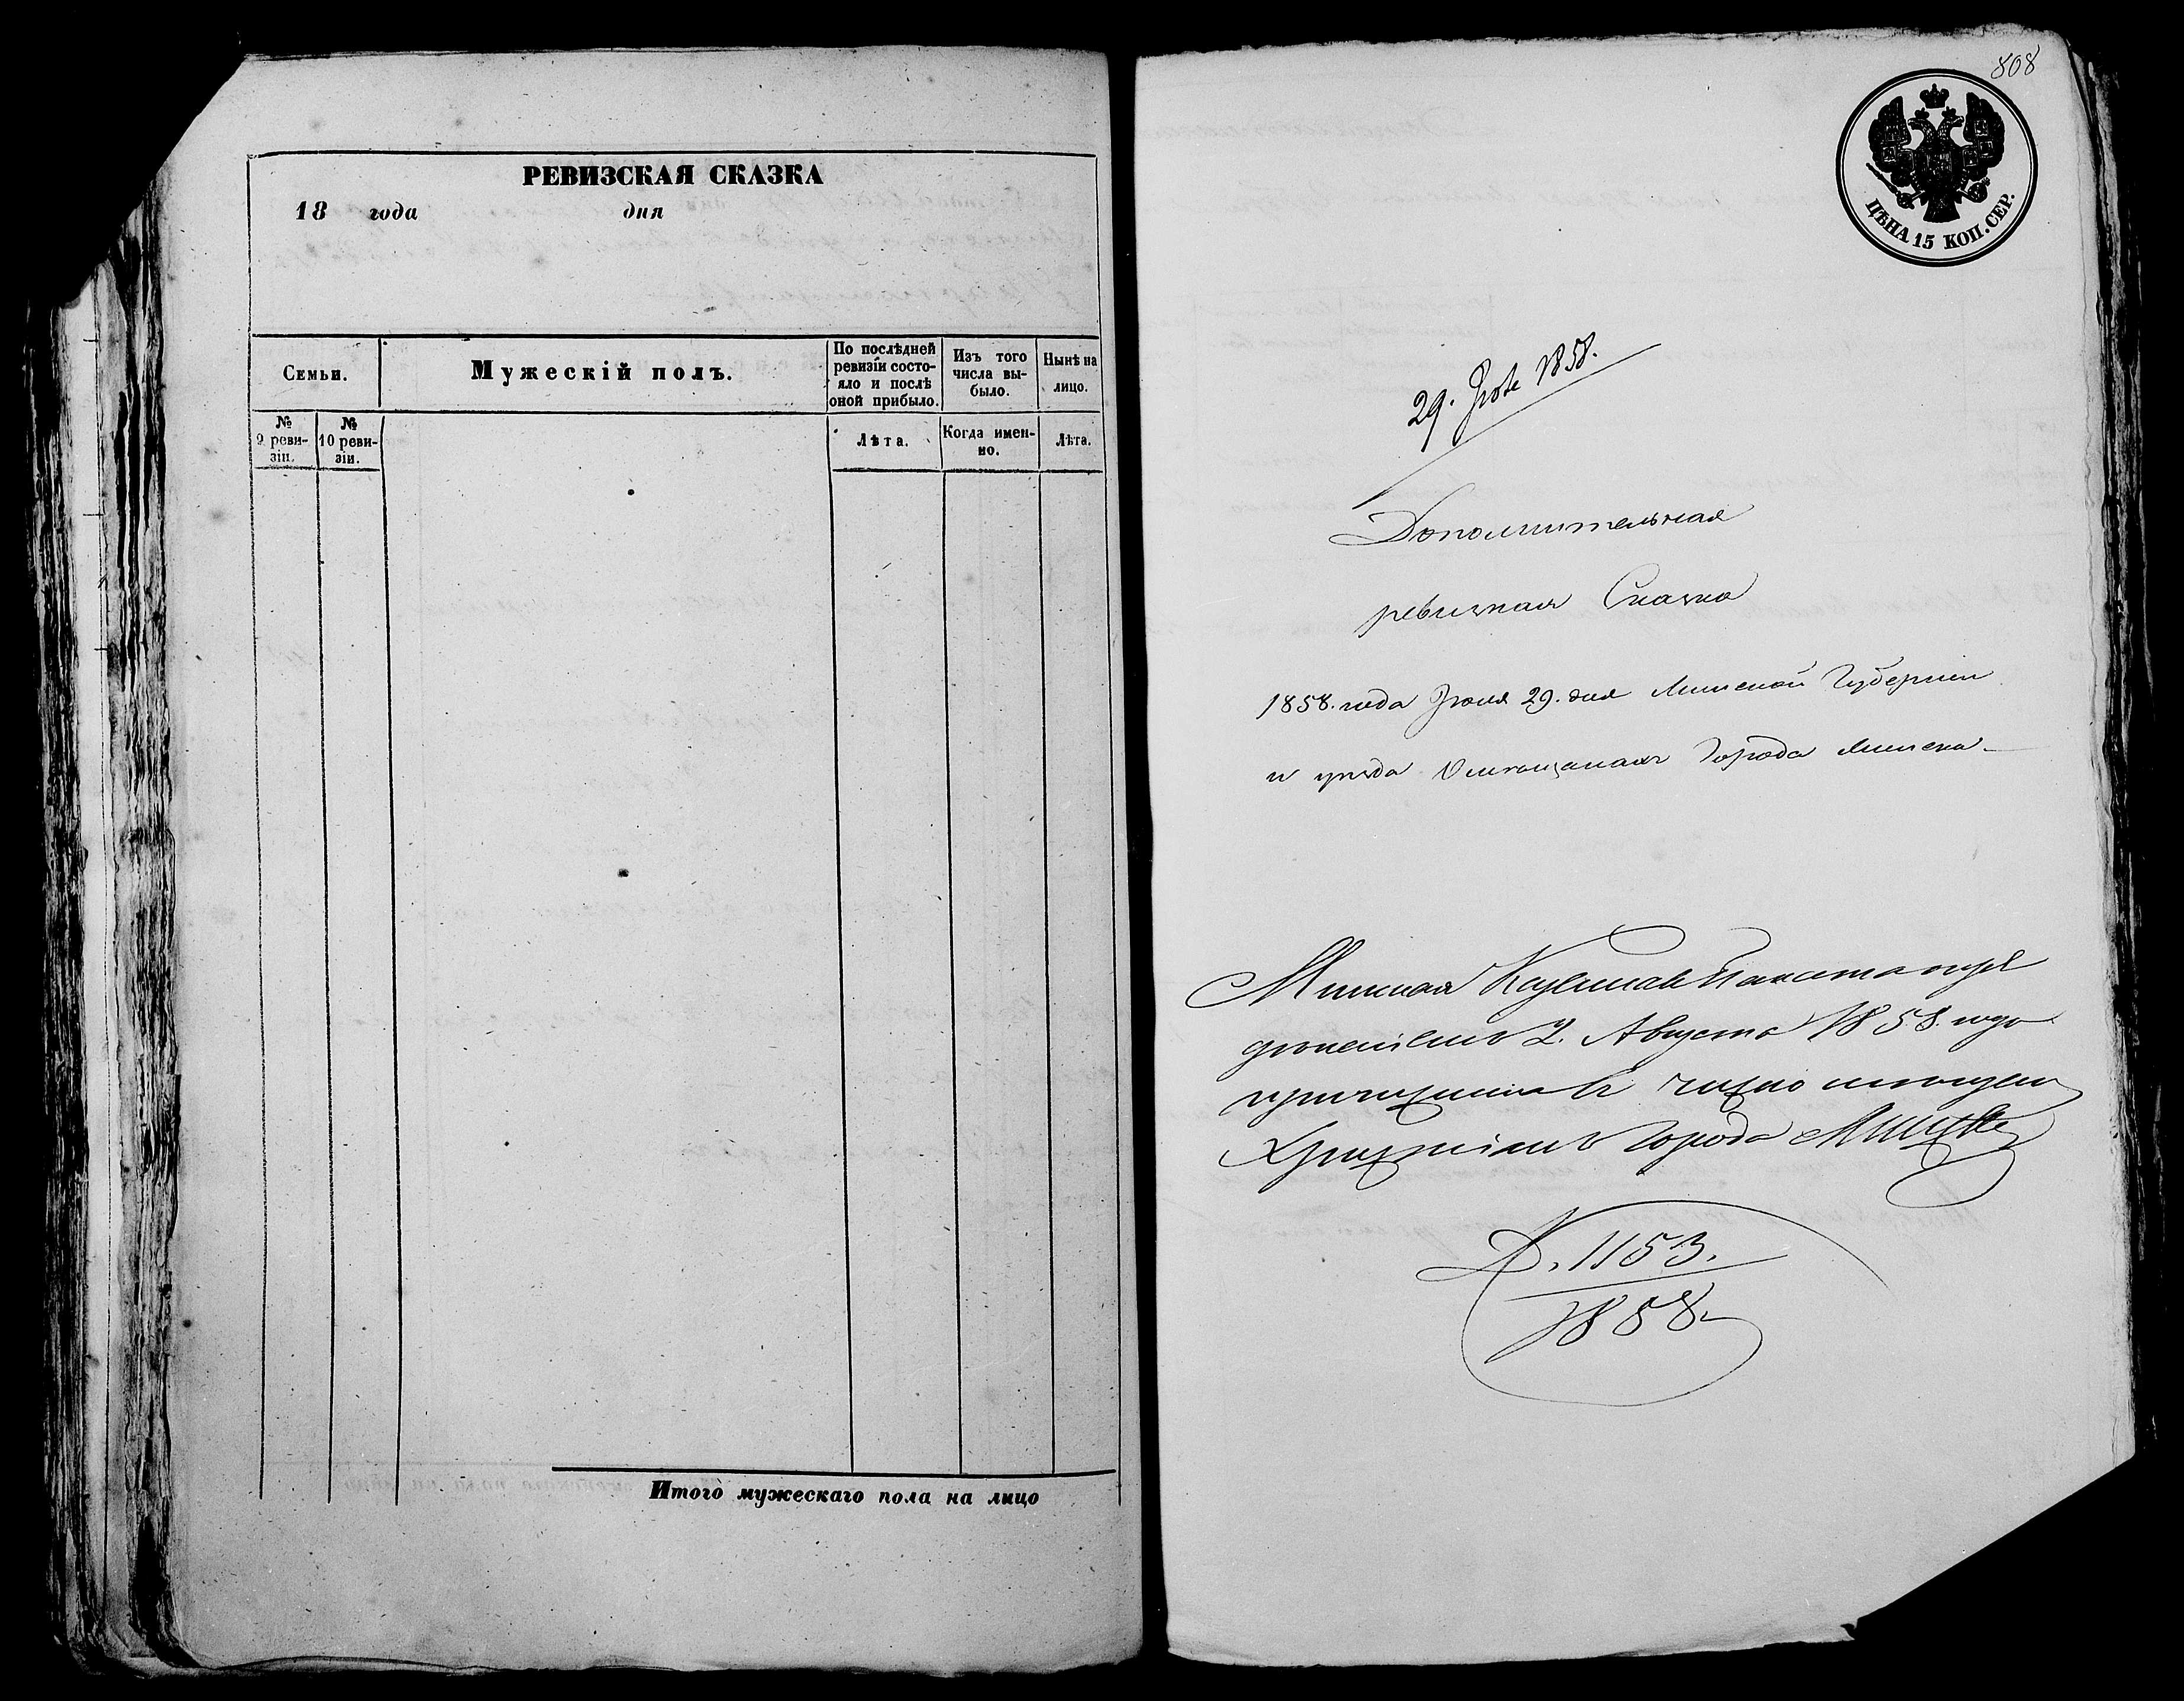 РЕВИЗСКАЯ СКАЗКА
18 года дня
Семьи.
Мужескій полъ.
По послѣдней ревизіи состояло и послѣ оной прибыло.
Изъ того числа выбыло.
Нынѣ на лицо.
№ 9 ревизіи.
№ 10 ревизіи.
Лѣта.
Когда именно.
Лѣта.
Итого мужескаго пола на лицо
808
ЦѢНА 15 КОП. СЕР.
29. Іюля 1858.
Дополнительная
ревизкая Сказка
1858. года Іюля 29. дня Минской Губерніи
и уѣзда О мещанахъ Города Минска
Минская Казенная Палата
2. Августа 1858 года
въ число мещанъ
Христіанъ города Минска
Д. 1153.
1858